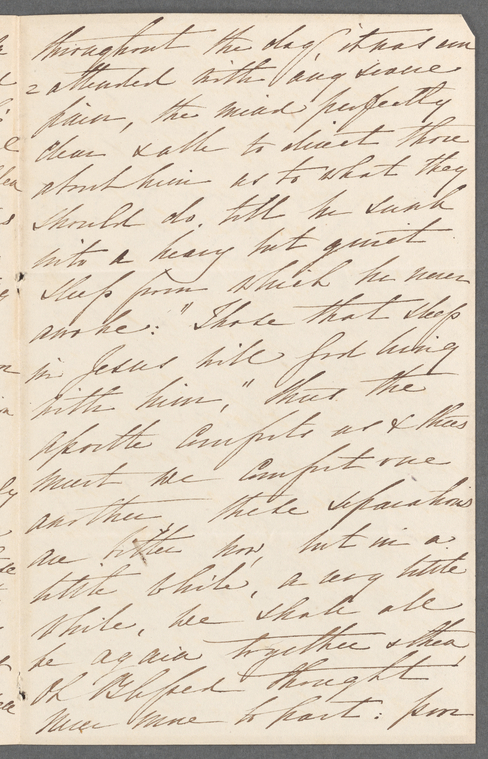 throughout the day it was un
=attended with any severe
pain, the mind perfectly
clear & able to direct those
about him as to what they
should do. till he sunk
into a heavy but quiet
sleep from which he never
awoke: "Those that sleep
in Jesus will God bring
with him," thus the
apostle comforts us & thus
must we comfort one
another these separations
are bitter now, but in a
little while, a very little
while, we shall all
be again together & then
Oh Blessed thought
never more to part: poor